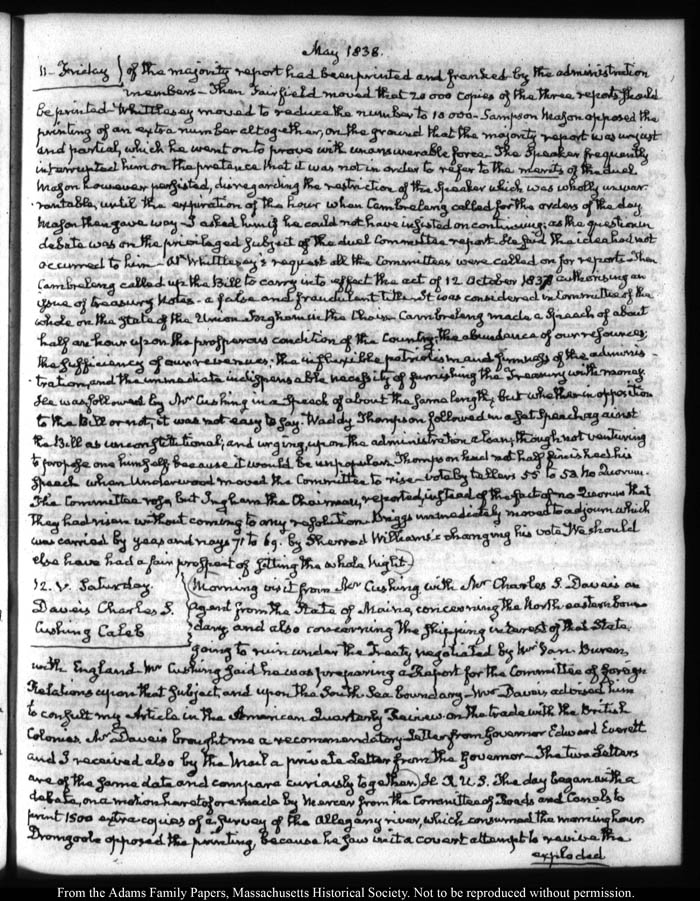 May 1838.
11. Friday } of the majority report had been printed and franked by the administration
members – Then Fairfield moved that 20 000 copies of the three reports should
be printed. Whittlesey moved to reduce the number to 10 000 – Sampson Mason opposed the
printing of an extra number altogether, on the ground that the majority report was unjust
and partial, which he went on to prove with unanswerable force – The Speaker frequently
interrupted him on the pretence that it was not in order to refer to the merits of the duel
Mason however persisted, disregarding the restriction of the Speaker which was wholly unwar-
rantable, until the expiration of the hour when Cambreleng called for the orders of the day
Mason then gave way – I asked him if he could not have insisted on continuing; as the question in
debate was on the privileged subject of the duel Committee report. He said the idea had not
occurred to him – At Whittlesey's request all the Committees were called on for reports – Then
Cambreleng called up the Bill to carry into effect the act of 12 October 1837 authorising an
issue of treasury Notes – a false and fraudulent title – It was considered in Committee of the
whole on the state of the Union Ingham in the Chair – Cambreleng made a Speech of about
half an hour upon the prosperous condition of the Country; the abundance of our resources;
the sufficiency of our revenues; the inflexible patriotism and firmness of the adminis-
tration, and the immediate indispensable necessity of furnishing the Treasury with money
He was followed by Mr Cushing in a Speech of about the same length; but whether in opposition
to the Bill or not, it was not easy to say. Waddy Thompson followed in a set Speech against
the Bill as unconstitutional; and urging upon the administration a loan; though not venturing
to propose one himself because it would be unpopular. Thompson had not half finished his
Speech when Underwood moved the Committee to rise – vote by tellers 55 to 53 no Quorum.
The Committee rose, but Ingham the Chairman, reported, instead of the fact of no Quorum that
they had risen without coming to any resolution – Briggs immediately moved to adjourn which
was carried by yeas and nays 71 to 69. by Sherrod Williams's changing his vote. We should
else have had a fair prospect of sitting the whole Night
12. V. Saturday.
Daveis Charles S.
Cushing Caleb
Morning visit from Mr Cushing with Mr Charles S. Daveis an
agent from the State of Maine, concerning the North eastern boun-
dary and also concerning the shipping interest of that State
going to ruin under the Treaty negotiated by Mr Van Buren
with England. Mr Cushing said he was preparing a Report for the Committee of foreign
Relations upon that subject, and upon the South Sea boundary – Mr Daveis advised him
to consult my Article in the American Quarterly Review on the trade with the British
Colonies. Mr Daveis brought me a recommendatory Letter from Governor Edward Everett
and I received also by the Mail a private Letter from the Governor – The two Letters
are of the same date and compare curiously together. H. R. U. S. The day began with a
debate, on a motion heretofore made by Mercer from the Committee of Roads and Canals to
print 1500 extra copies of a survey of the Allegany river, which consumed the morning hour
Dromgoole opposed the printing, because he saw in it a covert attempt to revive the
exploded
From the Adams Family Papers, Massachusetts Historical Society. Not to be reproduced without permission.